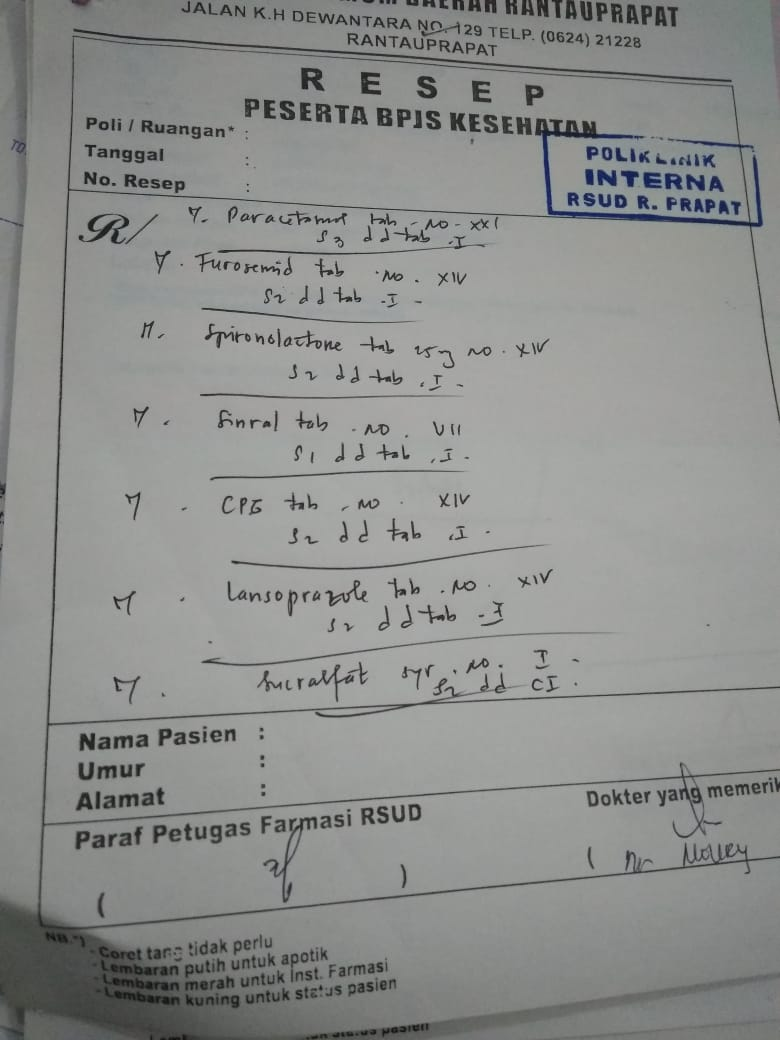 DAERAH RANTAUPRAPAT
JALAN K.H DEWANTARA NO. 129 TELP. (0624) 21228
RANTAUPRAPAT
RESEP
PESERTA BPJS KESEHATAN
Poli / Ruangan* :
Tanggal :
No. Resep :
POLIKLINIK
INTERNA
RSUD R. PRAPAT
R/ Paracetamol tab - no - XXI
S3 dd tab I
Furosemid tab no. XIV
S2 dd tab I -
Spironolactone tab 25 no. XIV
S2 dd tab I -
tab no. VII
S1 dd tab I -
CPG tab no. XIV
S2 dd tab I -
Lansoprazole tab no. XIV
S2 dd tab I
Sucralfat syr no. I -
S2 dd CI
Nama Pasien :
Umur :
Alamat :
Paraf Petugas Farmasi RSUD
Dokter yang memerik
( )
( dr
NB.*)
- Coret tang tidak perlu
- Lembaran putih untuk apotik
- Lembaran merah untuk Inst. Farmasi
- Lembaran kuning untuk status pasien
status pasien